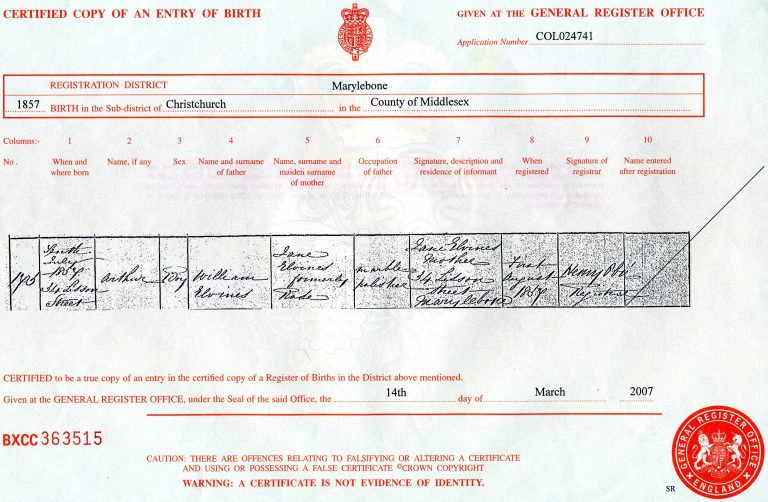 CERTIFIED COPY OF AN ENTRY OF BIRTH
GIVEN AT THE GENERAL REGISTER OFFICE
Application Number COL024741
REGISTRATION DISTRICT Marylebone
1857 BIRTH in the Sub-district of Christchurch in the County of Middlesex
Columns:- 1 2 3 4 5 6 7 8 9 10
No. When and where born Name, if any Sex Name and surname of father Name, surname and maiden surname of mother Occupation of father Signature, description and residence of informant When registered Signature of registrar Name entered after registration
Tenth
July
1857
Lisson
Street
Arthur
Boy
William
Elvines
Jane
Elvines
formerly
marble
polisher
Jane Elvines
Mother
Lisson
Street
Marylebone
First
August
1857
Henry
Registrar
CERTIFIED to be a true copy of an entry in the certified copy of a Register of Births in the District above mentioned.
Given at the GENERAL REGISTER OFFICE, under the Seal of the said Office, the 14th day of March 2007
BXCC 363515
CAUTION: THERE ARE OFFENCES RELATING TO FALSIFYING OR ALTERING A CERTIFICATE
AND USING OR POSSESSING A FALSE CERTIFICATE ©CROWN COPYRIGHT
WARNING: A CERTIFICATE IS NOT EVIDENCE OF IDENTITY.
GENERAL REGISTER OFFICE
ENGLAND
SR